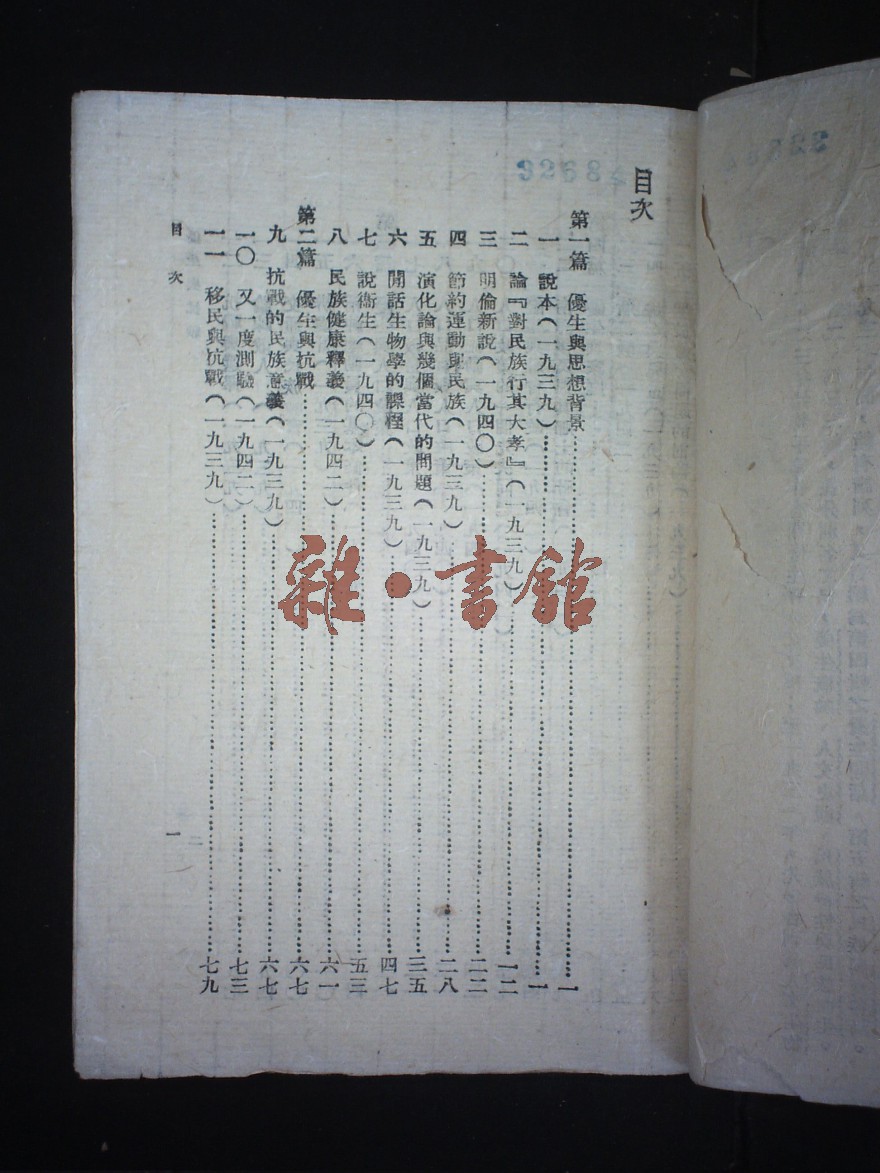 目次
第一篇 優生與思想背景……一
一 說本(一九三九)……一
二 論『對民族行其大孝』(一九三九)……一二
三 明倫新說(一九四〇)……二二
四 節約運動與民族(一九三九)……二八
五 演化論與幾個當代的問題(一九三九)……三五
六 閒話生物學的課程(一九三九)……四七
七 說衞生(一九四〇)……五三
八 民族健康釋義(一九四二)……六一
第二篇 優生與抗戰……六七
九 抗戰的民族意義(一九三九)……六七
一〇 又一度測驗(一九四二)……七三
一一 移民與抗戰(一九三九)……七九
目次 一
雜·書館